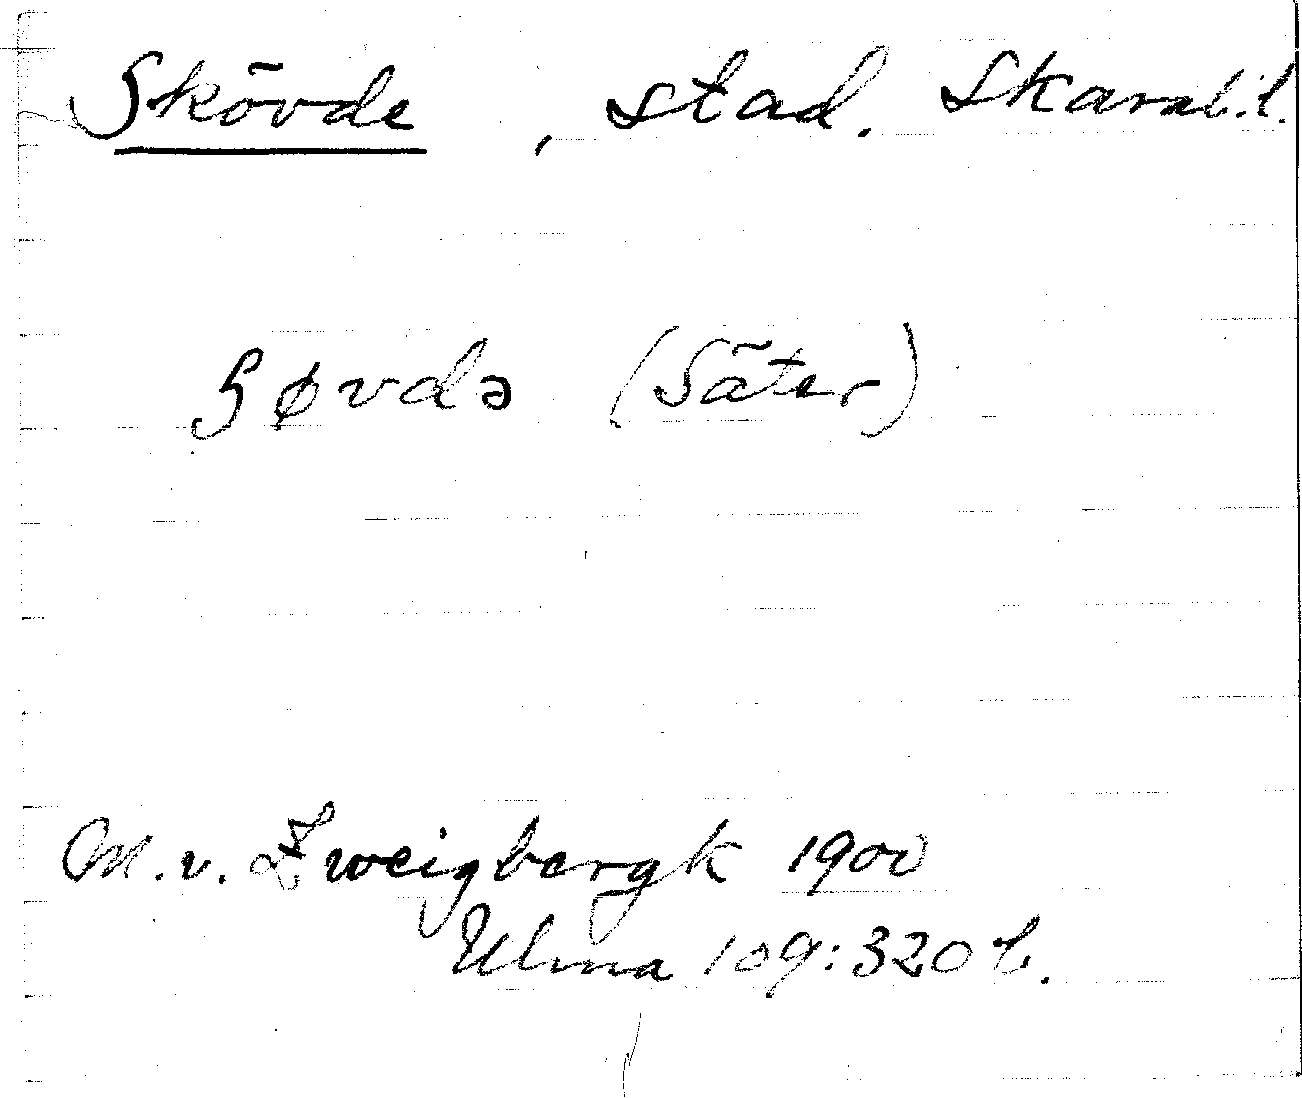 Skövde , stad. Skarab.l.
ʃøvdə (Säter)
M. v. Zweigbergk 1900
Ulma 109:320 b.